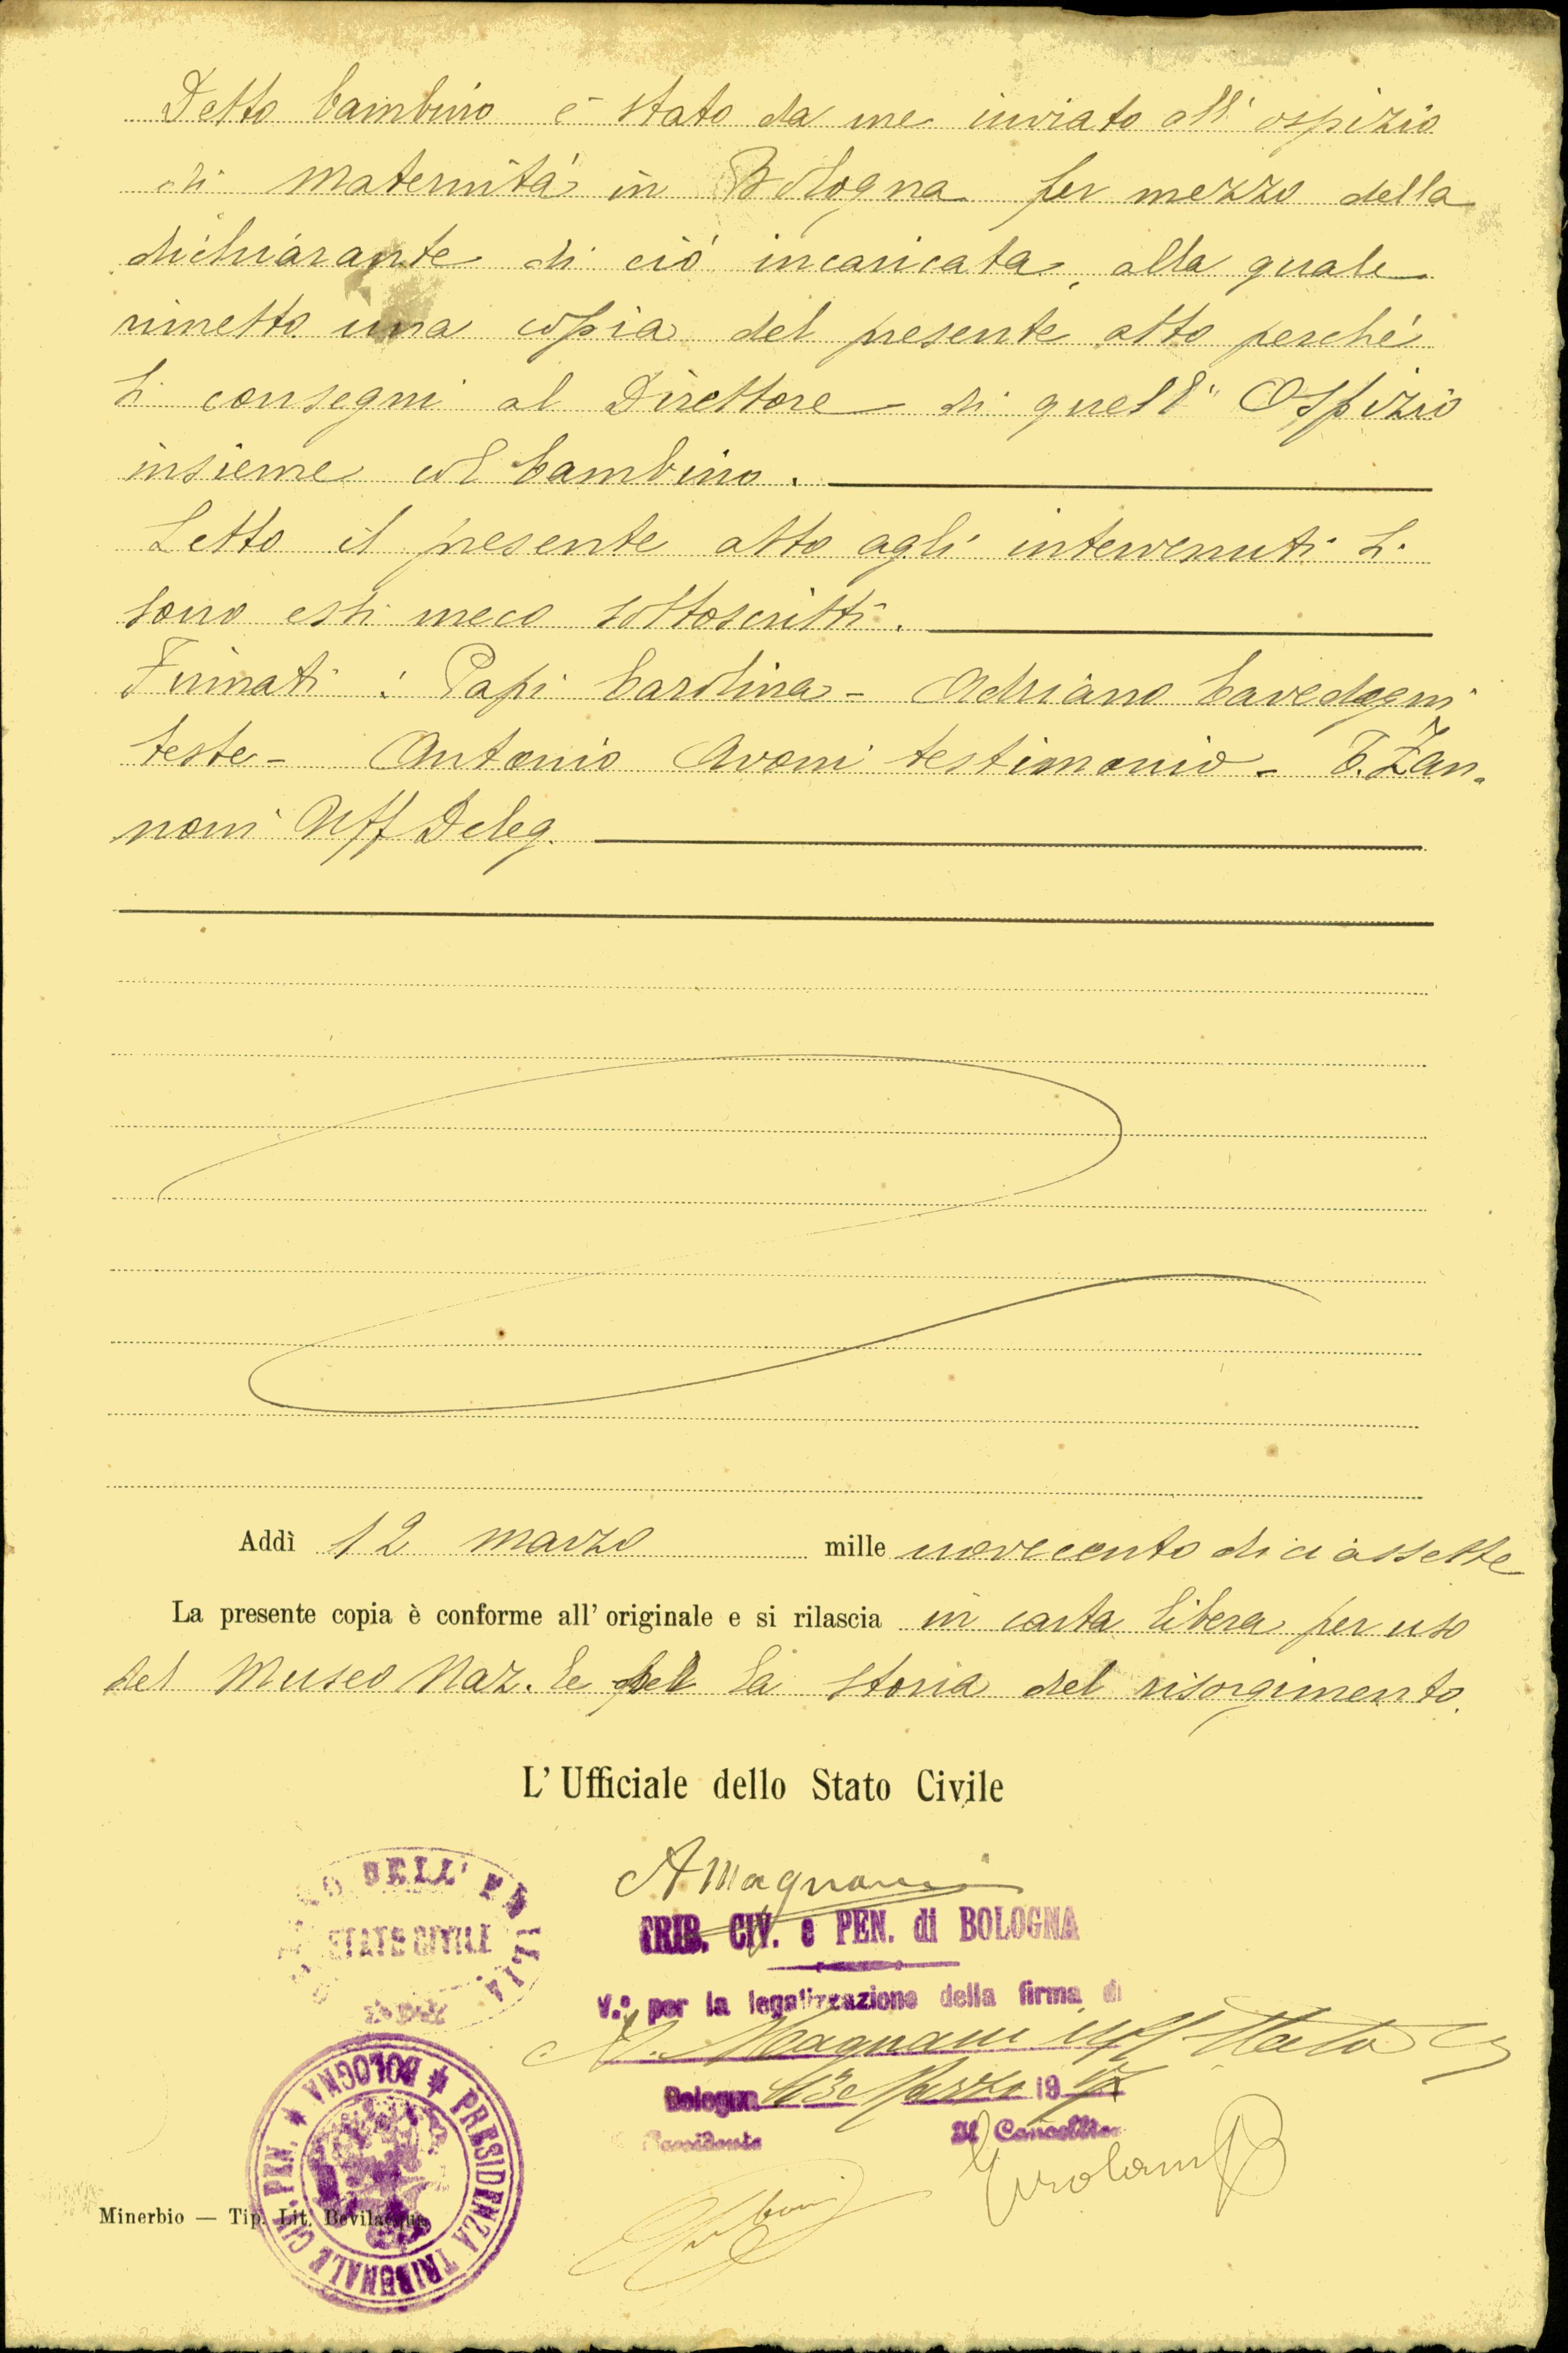 Detto bambino è stato da me inviato all' ospizio
di maternità in Bologna per mezzo della
dichiarante di ciò incaricata, alla quale
rimetto una copia del presente atto perchè
si consegni al Direttore di quell' Ospizio
insieme col bambino.
Letto il presente atto agli intervenuti si
sono essi meco sottoscritti.
Firmati : Papi Carolina - Adriano Cavedagni
teste - Antonio Avoni testimonio - T. Zan-
noni Uff Deleg.
Addì 12 marzo mille novecento diciassette
La presente copia è conforme all' originale e si rilascia in carta libera per uso
del Museo Naz.le per la storia del risorgimento.
L' Ufficiale dello Stato Civile
A Magnani
DELL' EMILIA
STATO CIVILE
TRIB. CIV. e PEN. di BOLOGNA
V.° per la legalizzazione della firma di
A. Magnani uff Stato C
Bologna 13 Marzo 1917
Il Presidente Il Cancelliere
PRESIDENZA TRIBUNALE CIV. PEN. * BOLOGNA *
Minerbio — Tip. Lit. Bevilacqua